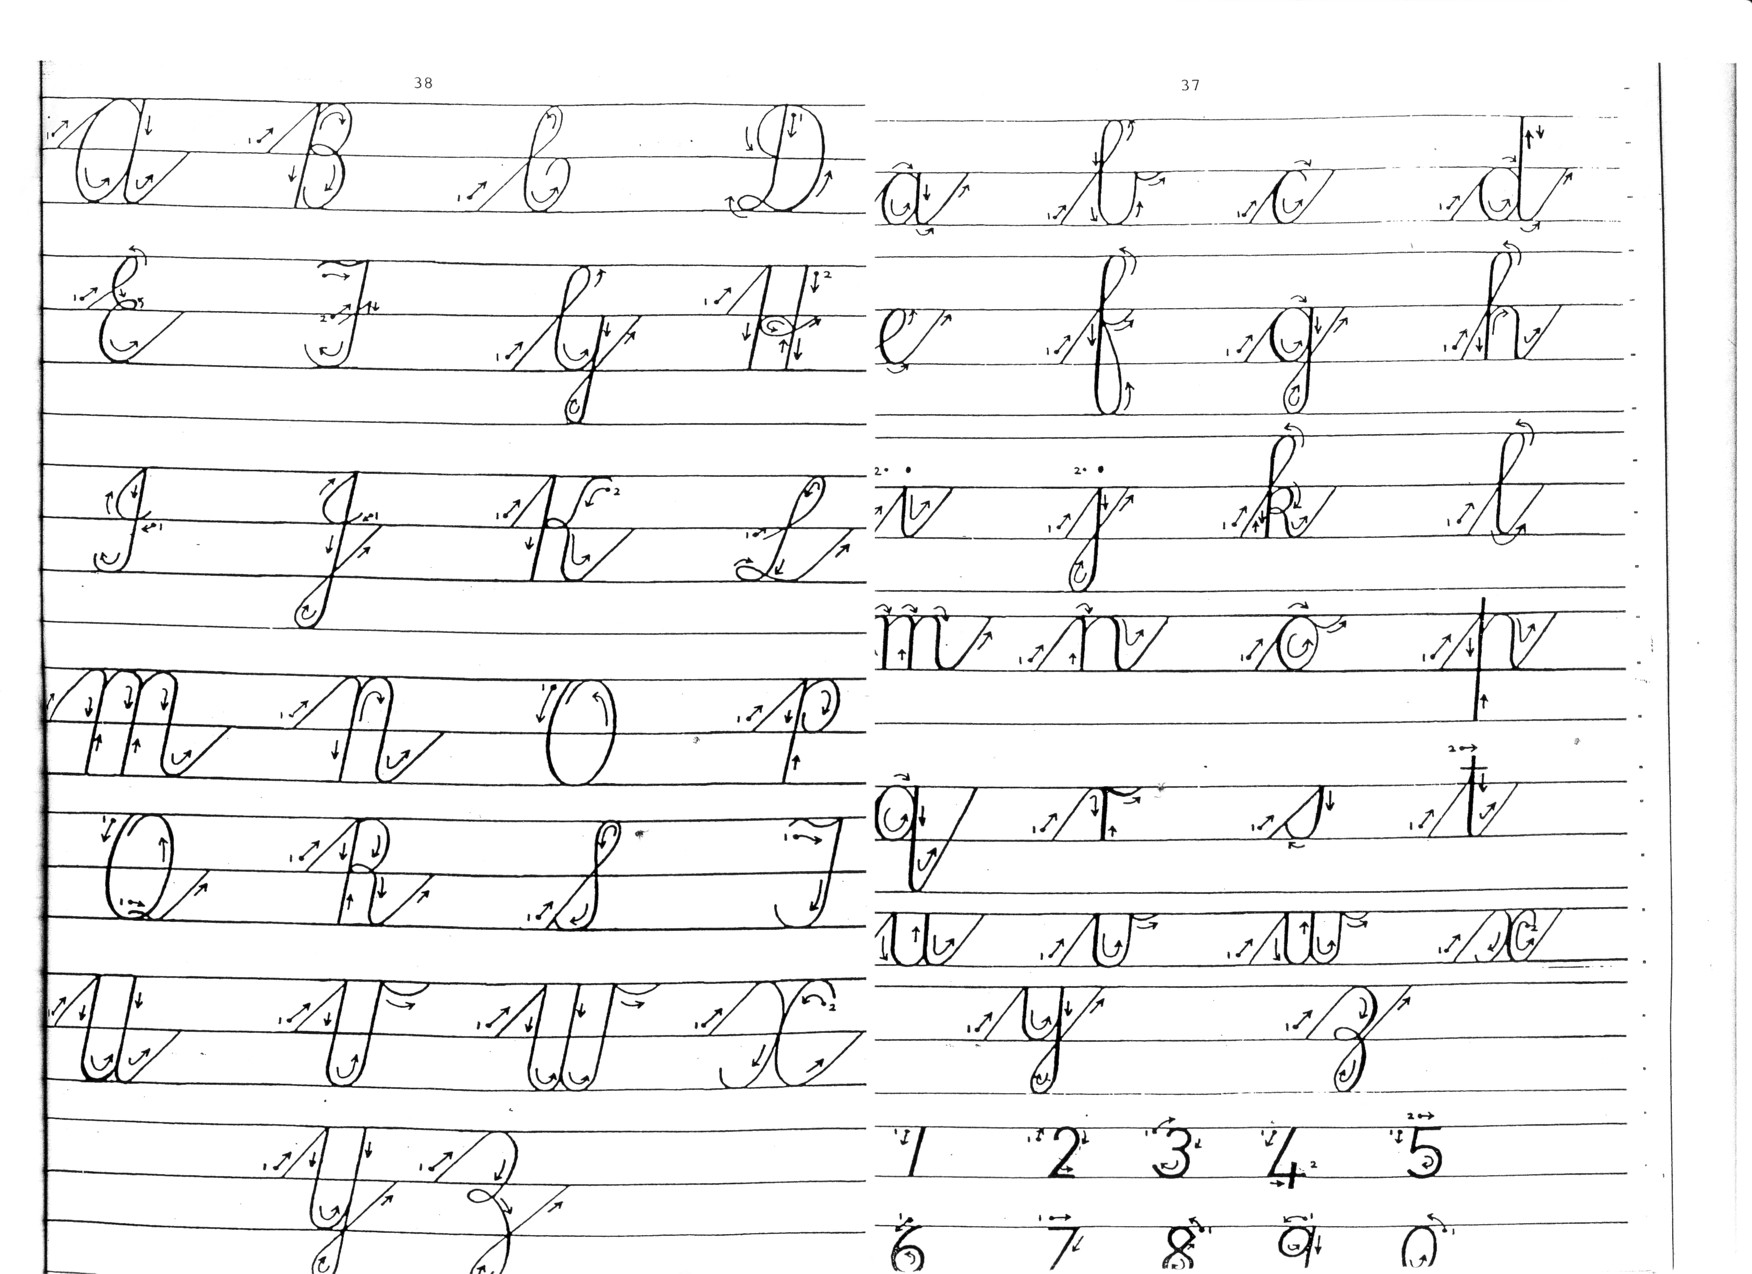 38
A B C D
E F G H
I J K L
M N O P
Q R S T
U V W X
Y Z
37
a b c d
e f g h
i j k l
m n o p
q r s t
u v w x
y z
1 2 3 4 5
6 7 8 9 0